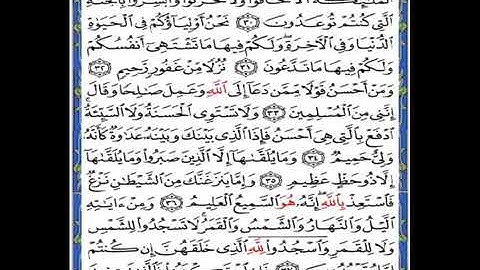 ٱلْمَلَٰٓئِكَةُ أَلَّا تَخَافُوا۟ وَلَا تَحْزَنُوا۟ وَأَبْشِرُوا۟ بِٱلْجَنَّةِ
ٱلَّتِى كُنتُمْ تُوعَدُونَ ٣٠ نَحْنُ أَوْلِيَآؤُكُمْ فِى ٱلْحَيَوٰةِ
ٱلدُّنْيَا وَفِى ٱلْـَٔاخِرَةِ وَلَكُمْ فِيهَا مَا تَشْتَهِىٓ أَنفُسُكُمْ
وَلَكُمْ فِيهَا مَا تَدَّعُونَ ٣١ نُزُلًا مِّنْ غَفُورٍ رَّحِيمٍ ٣٢
وَمَنْ أَحْسَنُ قَوْلًا مِّمَّن دَعَآ إِلَى ٱللَّهِ وَعَمِلَ صَٰلِحًا وَقَالَ
إِنَّنِى مِنَ ٱلْمُسْلِمِينَ ٣٣ وَلَا تَسْتَوِى ٱلْحَسَنَةُ وَلَا ٱلسَّيِّئَةُ
ٱدْفَعْ بِٱلَّتِى هِىَ أَحْسَنُ فَإِذَا ٱلَّذِى بَيْنَكَ وَبَيْنَهُۥ عَدَٰوَةٌ كَأَنَّهُۥ
وَلِىٌّ حَمِيمٌ ٣٤ وَمَا يُلَقَّىٰهَآ إِلَّا ٱلَّذِينَ صَبَرُوا۟ وَمَا يُلَقَّىٰهَآ
إِلَّا ذُو حَظٍّ عَظِيمٍ ٣٥ وَإِمَّا يَنزَغَنَّكَ مِنَ ٱلشَّيْطَٰنِ نَزْغٌ
فَٱسْتَعِذْ بِٱللَّهِ إِنَّهُۥ هُوَ ٱلسَّمِيعُ ٱلْعَلِيمُ ٣٦ وَمِنْ ءَايَٰتِهِ
ٱلَّيْلُ وَٱلنَّهَارُ وَٱلشَّمْسُ وَٱلْقَمَرُ لَا تَسْجُدُوا۟ لِلشَّمْسِ
وَلَا لِلْقَمَرِ وَٱسْجُدُوا۟ لِلَّهِ ٱلَّذِى خَلَقَهُنَّ إِن كُنتُمْ